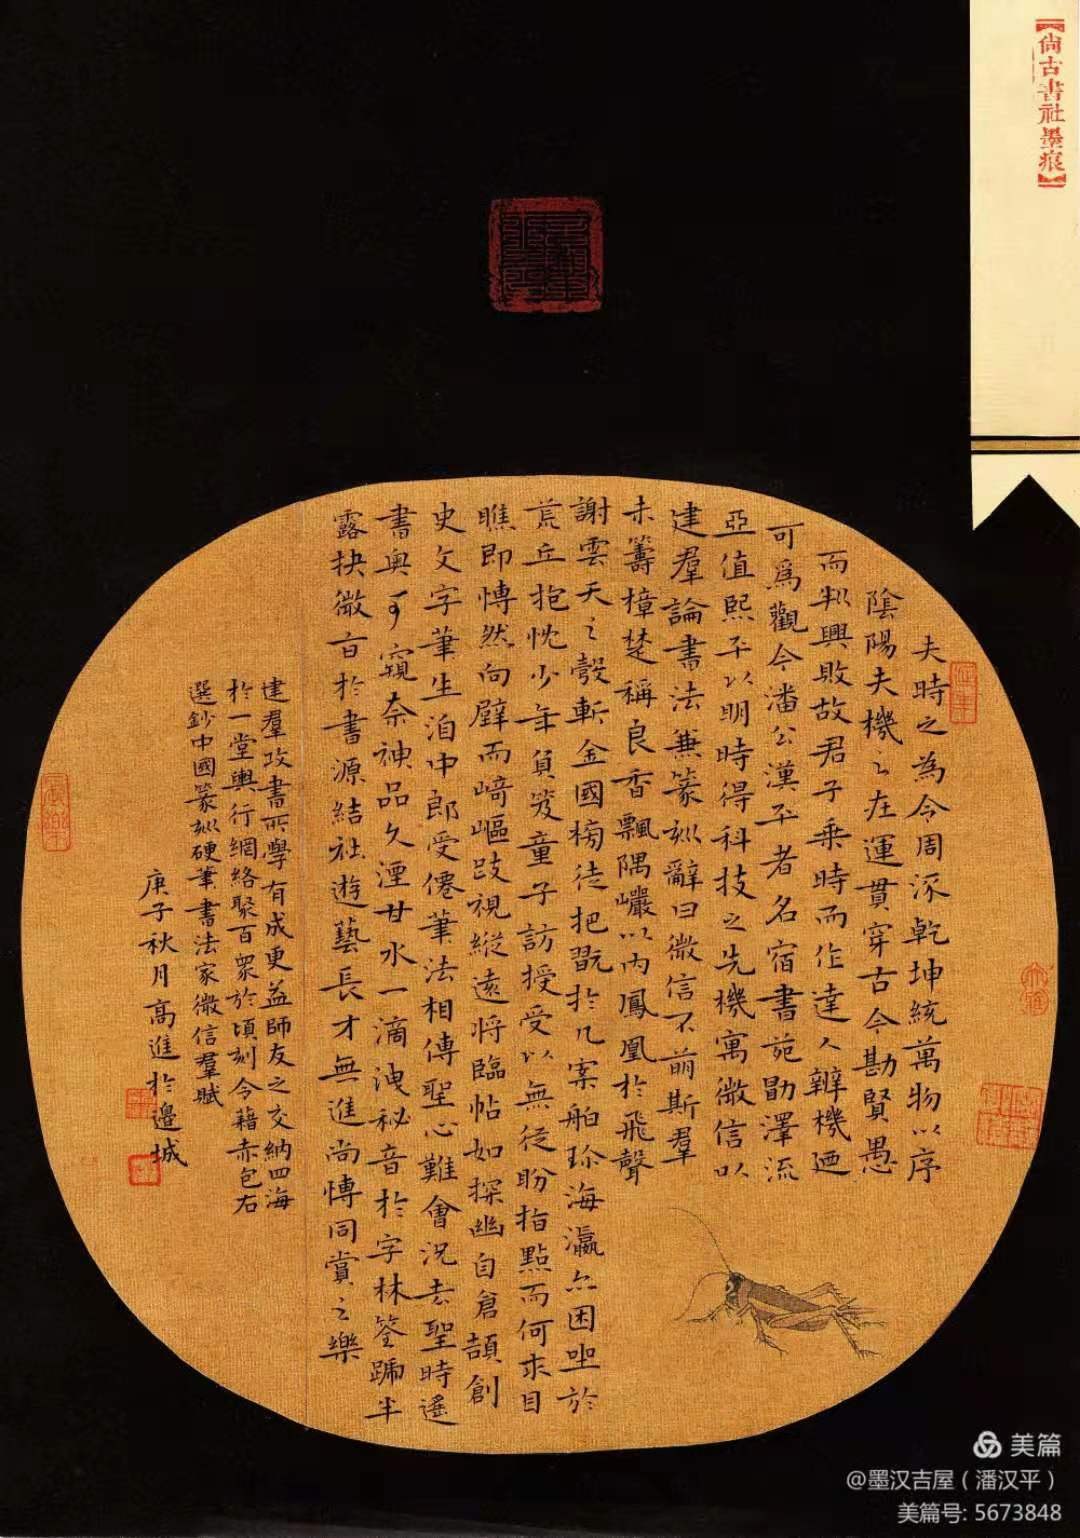 【尙古書社墨痕】
夫時之為令周涿乾坤統萬物以序
陰陽夫機之在運貫穿古今勘賢愚
而判興敗故君子乘時而作達人辧機廼
可為觀今潘公漢平者名宿書苑勖澤流
亞值熙平以明時得科技之先機寓微信以
建羣論書法兼篆刻辭曰微信不萠斯羣
未籌樟楚稱良香飄隅巘以內鳳凰於飛聲
謝雲天之彀斬金國榜徒把翫於几案舶珍海瀛尒困坐於
荒丘抱忱少年負笈童子訪授受以無從盼指點而何求目
瞧即愽然向壁而﨑嶇跂視縱遠將臨帖如探幽自倉頡創
史文字筆生洎中郎受僊筆法相傳聖心難會況去聖時遙
書奥可窺奈神品久湮甘水一滴洩秘音於字林筌蹄半
露抉微言於書源結社遊藝長才無進尚愽同賞之樂
建羣攻書所學有成更益師友之交納四海
於一堂與行網絡聚百衆於頃刻今藉赤包右
選鈔中國篆刻硬筆書法家微信羣賦
庚子秋月高進於邊城
美篇
@墨汉吉屋（潘汉平）
美篇号: 5673848